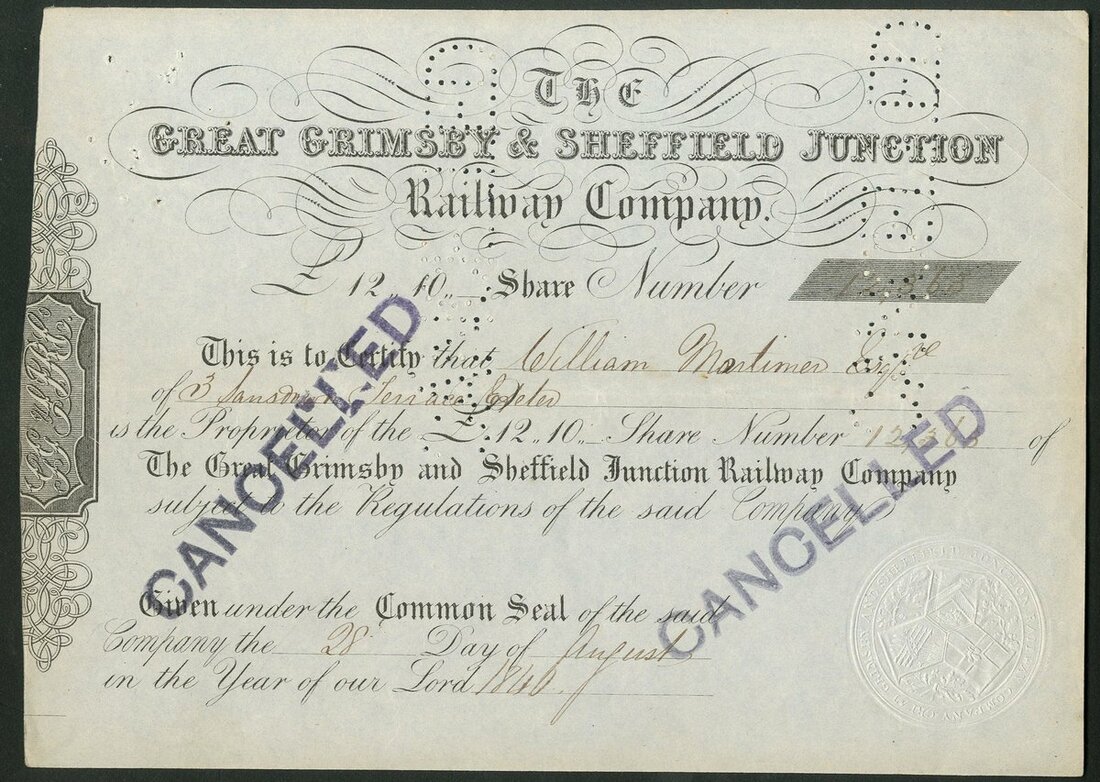 THE
GREAT GRIMSBY & SHEFFIELD JUNCTION
Railway Company.
£ 12,,10,, Share Number 12363
This is to Certify that William Mortimer Esq.re
of 3 Lansdown Terrace Exeter
is the Proprietor of the £12,,10,, Share Number 12363 of
The Great Grimsby and Sheffield Junction Railway Company
subject to the Regulations of the said Company.
Given under the Common Seal of the said
Company the 28 Day of August
in the Year of our Lord 1846.
CANCELLED
CANCELLED